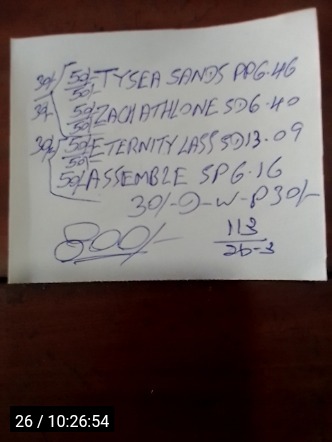 30/- 50/- TYSEA SANDS PP6.46
30/- 50/-
50/- ZACHATHLONE SD6.40
50/-
30/- 50/- ETERNITY LASS SD13.09
50/-
50/- ASSEMBLE SP6.16
30/-D-W-P30/-
800/-
113
26-3
26 / 10:26:54